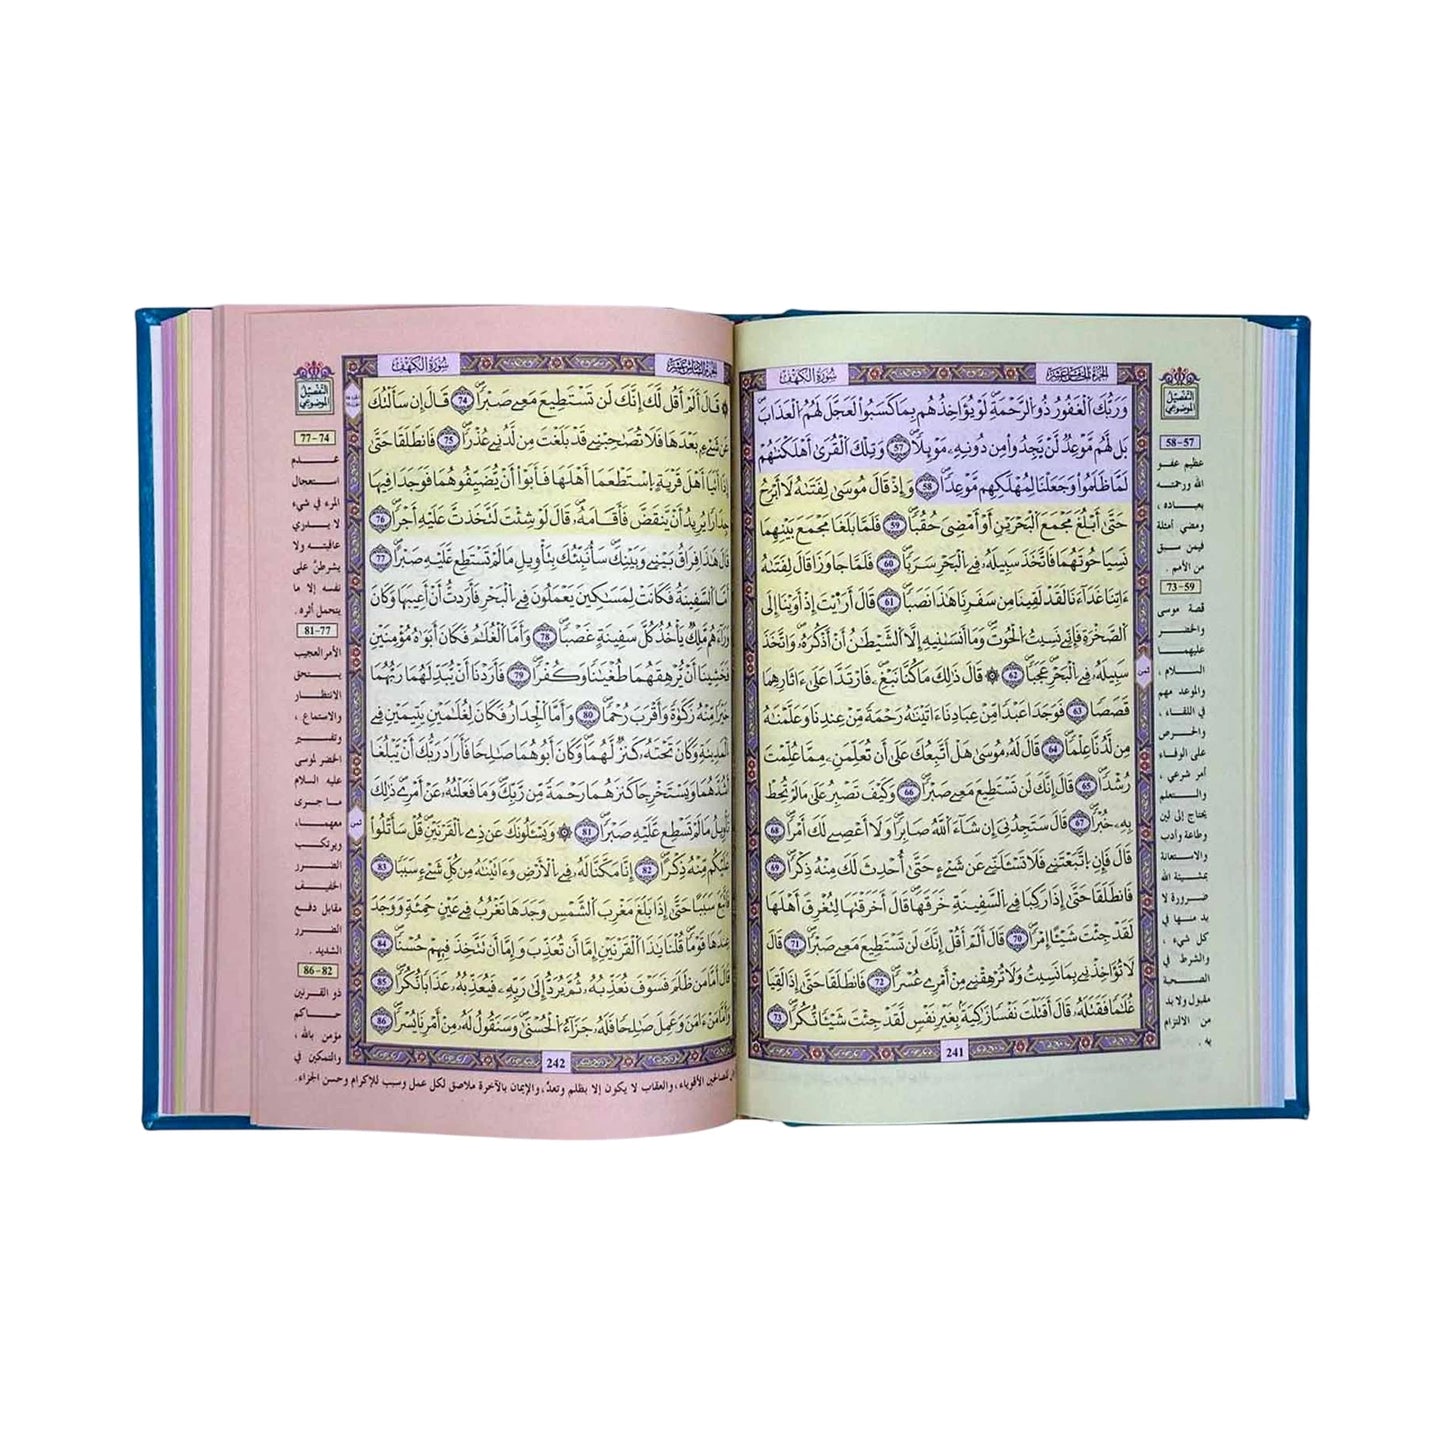 سُورَةُ الكَهْفِ
الجزء الخامس عشر
وَرَبُّكَ الْغَفُورُ ذُو الرَّحْمَةِ لَوْ يُؤَاخِذُهُم بِمَا كَسَبُوا لَعَجَّلَ لَهُمُ الْعَذَابَ
بَل لَّهُم مَّوْعِدٌ لَّنْ يَّجِدُوا مِن دُونِهِ مَوْئِلاً 57 وَتِلْكَ الْقُرَىٰ أَهْلَكْنَاهُمْ
لَمَّا ظَلَمُوا وَجَعَلْنَا لِمُهْلَكِهِم مَّوْعِداً 58 وَإِذْ قَالَ مُوسَىٰ لِفَتَاهُ لَا أَبْرَحُ
حَتَّىٰ أَبْلُغَ مَجْمَعَ الْبَحْرَيْنِ أَوْ أَمْضِيَ حُقُباً 59 فَلَمَّا بَلَغَا مَجْمَعَ بَيْنِهِمَا
نَسِيَا حُوتَهُمَا فَاتَّخَذَ سَبِيلَهُ فِي الْبَحْرِ سَرَباً 60 فَلَمَّا جَاوَزَا قَالَ لِفَتَاهُ
ءَاتِنَا غَدَاءَنَا لَقَدْ لَقِينَا مِن سَفَرِنَا هَٰذَا نَصَباً 61 قَالَ أَرَٰيْتَ إِذْ أَوَيْنَا إِلَى
الصَّخْرَةِ فَإِنِّي نَسِيتُ الْحُوتَ وَمَا أَنسَانِيهِ إِلَّا الشَّيْطَٰنُ أَنْ أَذْكُرَهُ وَاتَّخَذَ
سَبِيلَهُ فِي الْبَحْرِ عَجَباً 62 ۞ قَالَ ذَٰلِكَ مَا كُنَّا نَبْغِ فَارْتَدَّا عَلَىٰ ءَاثَارِهِمَا
قَصَصاً 63 فَوَجَدَا عَبْداً مِّنْ عِبَادِنَا ءَاتَيْنَٰهُ رَحْمَةً مِّنْ عِندِنَا وَعَلَّمْنَٰهُ
مِن لَّدُنَّا عِلْماً 64 قَالَ لَهُ مُوسَىٰ هَلْ أَتَّبِعُكَ عَلَىٰ أَن تُعَلِّمَنِ مِمَّا عُلِّمْتَ
رُشْداً 65 قَالَ إِنَّكَ لَن تَسْتَطِيعَ مَعِي صَبْراً 66 وَكَيْفَ تَصْبِرُ عَلَىٰ مَا لَمْ تُحِطْ
بِهِ خُبْراً 67 قَالَ سَتَجِدُنِي إِن شَاءَ اللَّهُ صَابِراً وَلَا أَعْصِي لَكَ أَمْراً 68
قَالَ فَإِنِ اتَّبَعْتَنِي فَلَا تَسْـَٔلَنِّي عَن شَيْءٍ حَتَّىٰ أُحْدِثَ لَكَ مِنْهُ ذِكْراً 69
فَانطَلَقَا حَتَّىٰ إِذَا رَكِبَا فِي السَّفِينَةِ خَرَقَهَا قَالَ أَخَرَقْتَهَا لِتُغْرِقَ أَهْلَهَا
لَقَدْ جِئْتَ شَيْـًٔا إِمْراً 70 قَالَ أَلَمْ أَقُلْ إِنَّكَ لَن تَسْتَطِيعَ مَعِي صَبْراً 71 قَالَ
لَا تُؤَاخِذْنِي بِمَا نَسِيتُ وَلَا تُرْهِقْنِي مِنْ أَمْرِي عُسْراً 72 فَانطَلَقَا حَتَّىٰ إِذَا لَقِيَا
غُلَٰماً فَقَتَلَهُ قَالَ أَقَتَلْتَ نَفْساً زَاكِيَةً بِغَيْرِ نَفْسٍ لَّقَدْ جِئْتَ شَيْـًٔا نُّكُراً 73
241
ثمن
التفصيل
الموضوعي
58-57
عظيم عفو
الله ورحمته
بعباده ،
ومضي أمثلة
فيمن سبق
من الأمم .
73-59
قصة موسى
والخضر
عليهما
السلام ،
والموعد مهم
في اللقاء ،
والحرص
على الوفاء
أمر شرعي ،
والتعلم
يحتاج إلى لين
وطاعة وأدب
والاستعانة
بمشيئة الله
ضرورة لا
بد منها في
كل شيء ،
والشرط في
الصحبة
مقبول ولا بد
من الالتزام
به .
سُورَةُ الكَهْفِ
الجزء السادس عشر
۞ قَالَ أَلَمْ أَقُل لَّكَ إِنَّكَ لَن تَسْتَطِيعَ مَعِي صَبْراً 74 قَالَ إِن سَأَلْتُكَ
عَن شَيْءٍ بَعْدَهَا فَلَا تُصَٰحِبْنِي قَدْ بَلَغْتَ مِن لَّدُنِي عُذْراً 75 فَانطَلَقَا حَتَّىٰ
إِذَا أَتَيَا أَهْلَ قَرْيَةٍ اسْتَطْعَمَا أَهْلَهَا فَأَبَوْا أَنْ يُّضَيِّفُوهُمَا فَوَجَدَا فِيهَا
جِدَاراً يُرِيدُ أَنْ يَّنقَضَّ فَأَقَامَهُ قَالَ لَوْ شِئْتَ لَتَّخَذتَّ عَلَيْهِ أَجْراً 76
قَالَ هَٰذَا فِرَاقُ بَيْنِي وَبَيْنِكَ سَأُنَبِّئُكَ بِتَأْوِيلِ مَا لَمْ تَسْتَطِع عَّلَيْهِ صَبْراً 77
أَمَّا السَّفِينَةُ فَكَانَتْ لِمَسَٰكِينَ يَعْمَلُونَ فِي الْبَحْرِ فَأَرَدتُّ أَنْ أَعِيبَهَا وَكَانَ
وَرَاءَهُم مَّلِكٌ يَأْخُذُ كُلَّ سَفِينَةٍ غَصْباً 78 وَأَمَّا الْغُلَٰمُ فَكَانَ أَبَوَاهُ مُؤْمِنَيْنِ
فَخَشِينَا أَنْ يُّرْهِقَهُمَا طُغْيَٰناً وَكُفْراً 79 فَأَرَدْنَا أَنْ يُّبَدِّلَهُمَا رَبُّهُمَا
خَيْراً مِّنْهُ زَكَوٰةً وَأَقْرَبَ رُحْماً 80 وَأَمَّا الْجِدَارُ فَكَانَ لِغُلَٰمَيْنِ يَتِيمَيْنِ فِي
الْمَدِينَةِ وَكَانَ تَحْتَهُ كَنزٌ لَّهُمَا وَكَانَ أَبُوهُمَا صَٰلِحاً فَأَرَادَ رَبُّكَ أَنْ يَّبْلُغَا
أَشُدَّهُمَا وَيَسْتَخْرِجَا كَنزَهُمَا رَحْمَةً مِّن رَّبِّكَ وَمَا فَعَلْتُهُ عَنْ أَمْرِي ذَٰلِكَ
تَأْوِيلُ مَا لَمْ تَسْطِع عَّلَيْهِ صَبْراً 81 ۞ وَيَسْـَٔلُونَكَ عَن ذِي الْقَرْنَيْنِ قُلْ سَأَتْلُوا
عَلَيْكُم مِّنْهُ ذِكْراً 82 إِنَّا مَكَّنَّا لَهُ فِي الْأَرْضِ وَءَاتَيْنَٰهُ مِن كُلِّ شَيْءٍ سَبَباً 83
فَاتَّبَعَ سَبَباً حَتَّىٰ إِذَا بَلَغَ مَغْرِبَ الشَّمْسِ وَجَدَهَا تَغْرُبُ فِي عَيْنٍ حَمِئَةٍ وَوَجَدَ
عِندَهَا قَوْماً قُلْنَا يَٰذَا الْقَرْنَيْنِ إِمَّا أَن تُعَذِّبَ وَإِمَّا أَن تَتَّخِذَ فِيهِمْ حُسْناً 84
قَالَ أَمَّا مَن ظَلَمَ فَسَوْفَ نُعَذِّبُهُ ثُمَّ يُرَدُّ إِلَىٰ رَبِّهِ فَيُعَذِّبُهُ عَذَاباً نُّكُراً 85
وَأَمَّا مَنْ ءَامَنَ وَعَمِلَ صَٰلِحاً فَلَهُ جَزَاءُ الْحُسْنَىٰ وَسَنَقُولُ لَهُ مِنْ أَمْرِنَا يُسْراً 86
242
ثمن
التفصيل
الموضوعي
77-74
عدم
استعجال
المرء في شيء
لا يدري
عاقبته ولا
يشرطن على
نفسه إلا ما
يتحمل أثره .
81-77
الأمر العجيب
يستحق
الانتظار
والاستماع ،
وتفسير
الخضر لموسى
عليه السلام
ما جرى
معهما،
ويرتكب
الضرر
الخفيف
مقابل دفع
الضرر
الشديد .
86-82
ذو القرنين
حاكم
مؤمن بالله ،
والتمكين في
للصالحين الأقوياء ، والعقاب لا يكون إلا بظلم وتعدّ، والإيمان بالآخرة ملاصق لكل عمل وسبب للإكرام وحسن الجزاء .